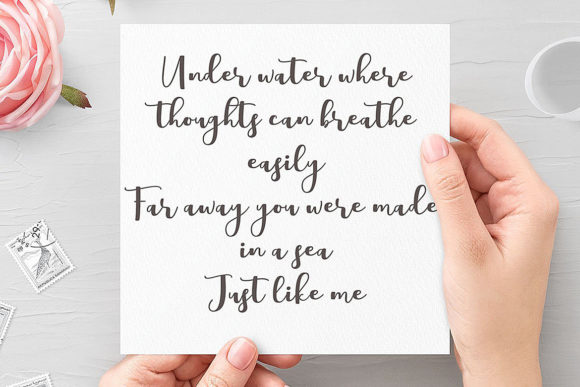 Under water where
thoughts can breathe
easily
Far away you were made
in a sea
Just like me